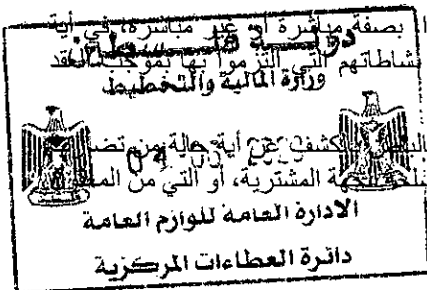 بصفة مباشرة أو غير مباشرة، في أية
دولة فلسطين
نشاطاتهم التي التزموا بها بموجب العقد
وزارة المالية والتخطيط
الكشف عن أية حالة من
الجهة المشترية، أو التي من
الادارة العامة للوازم العامة
دائرة العطاءات المركزية